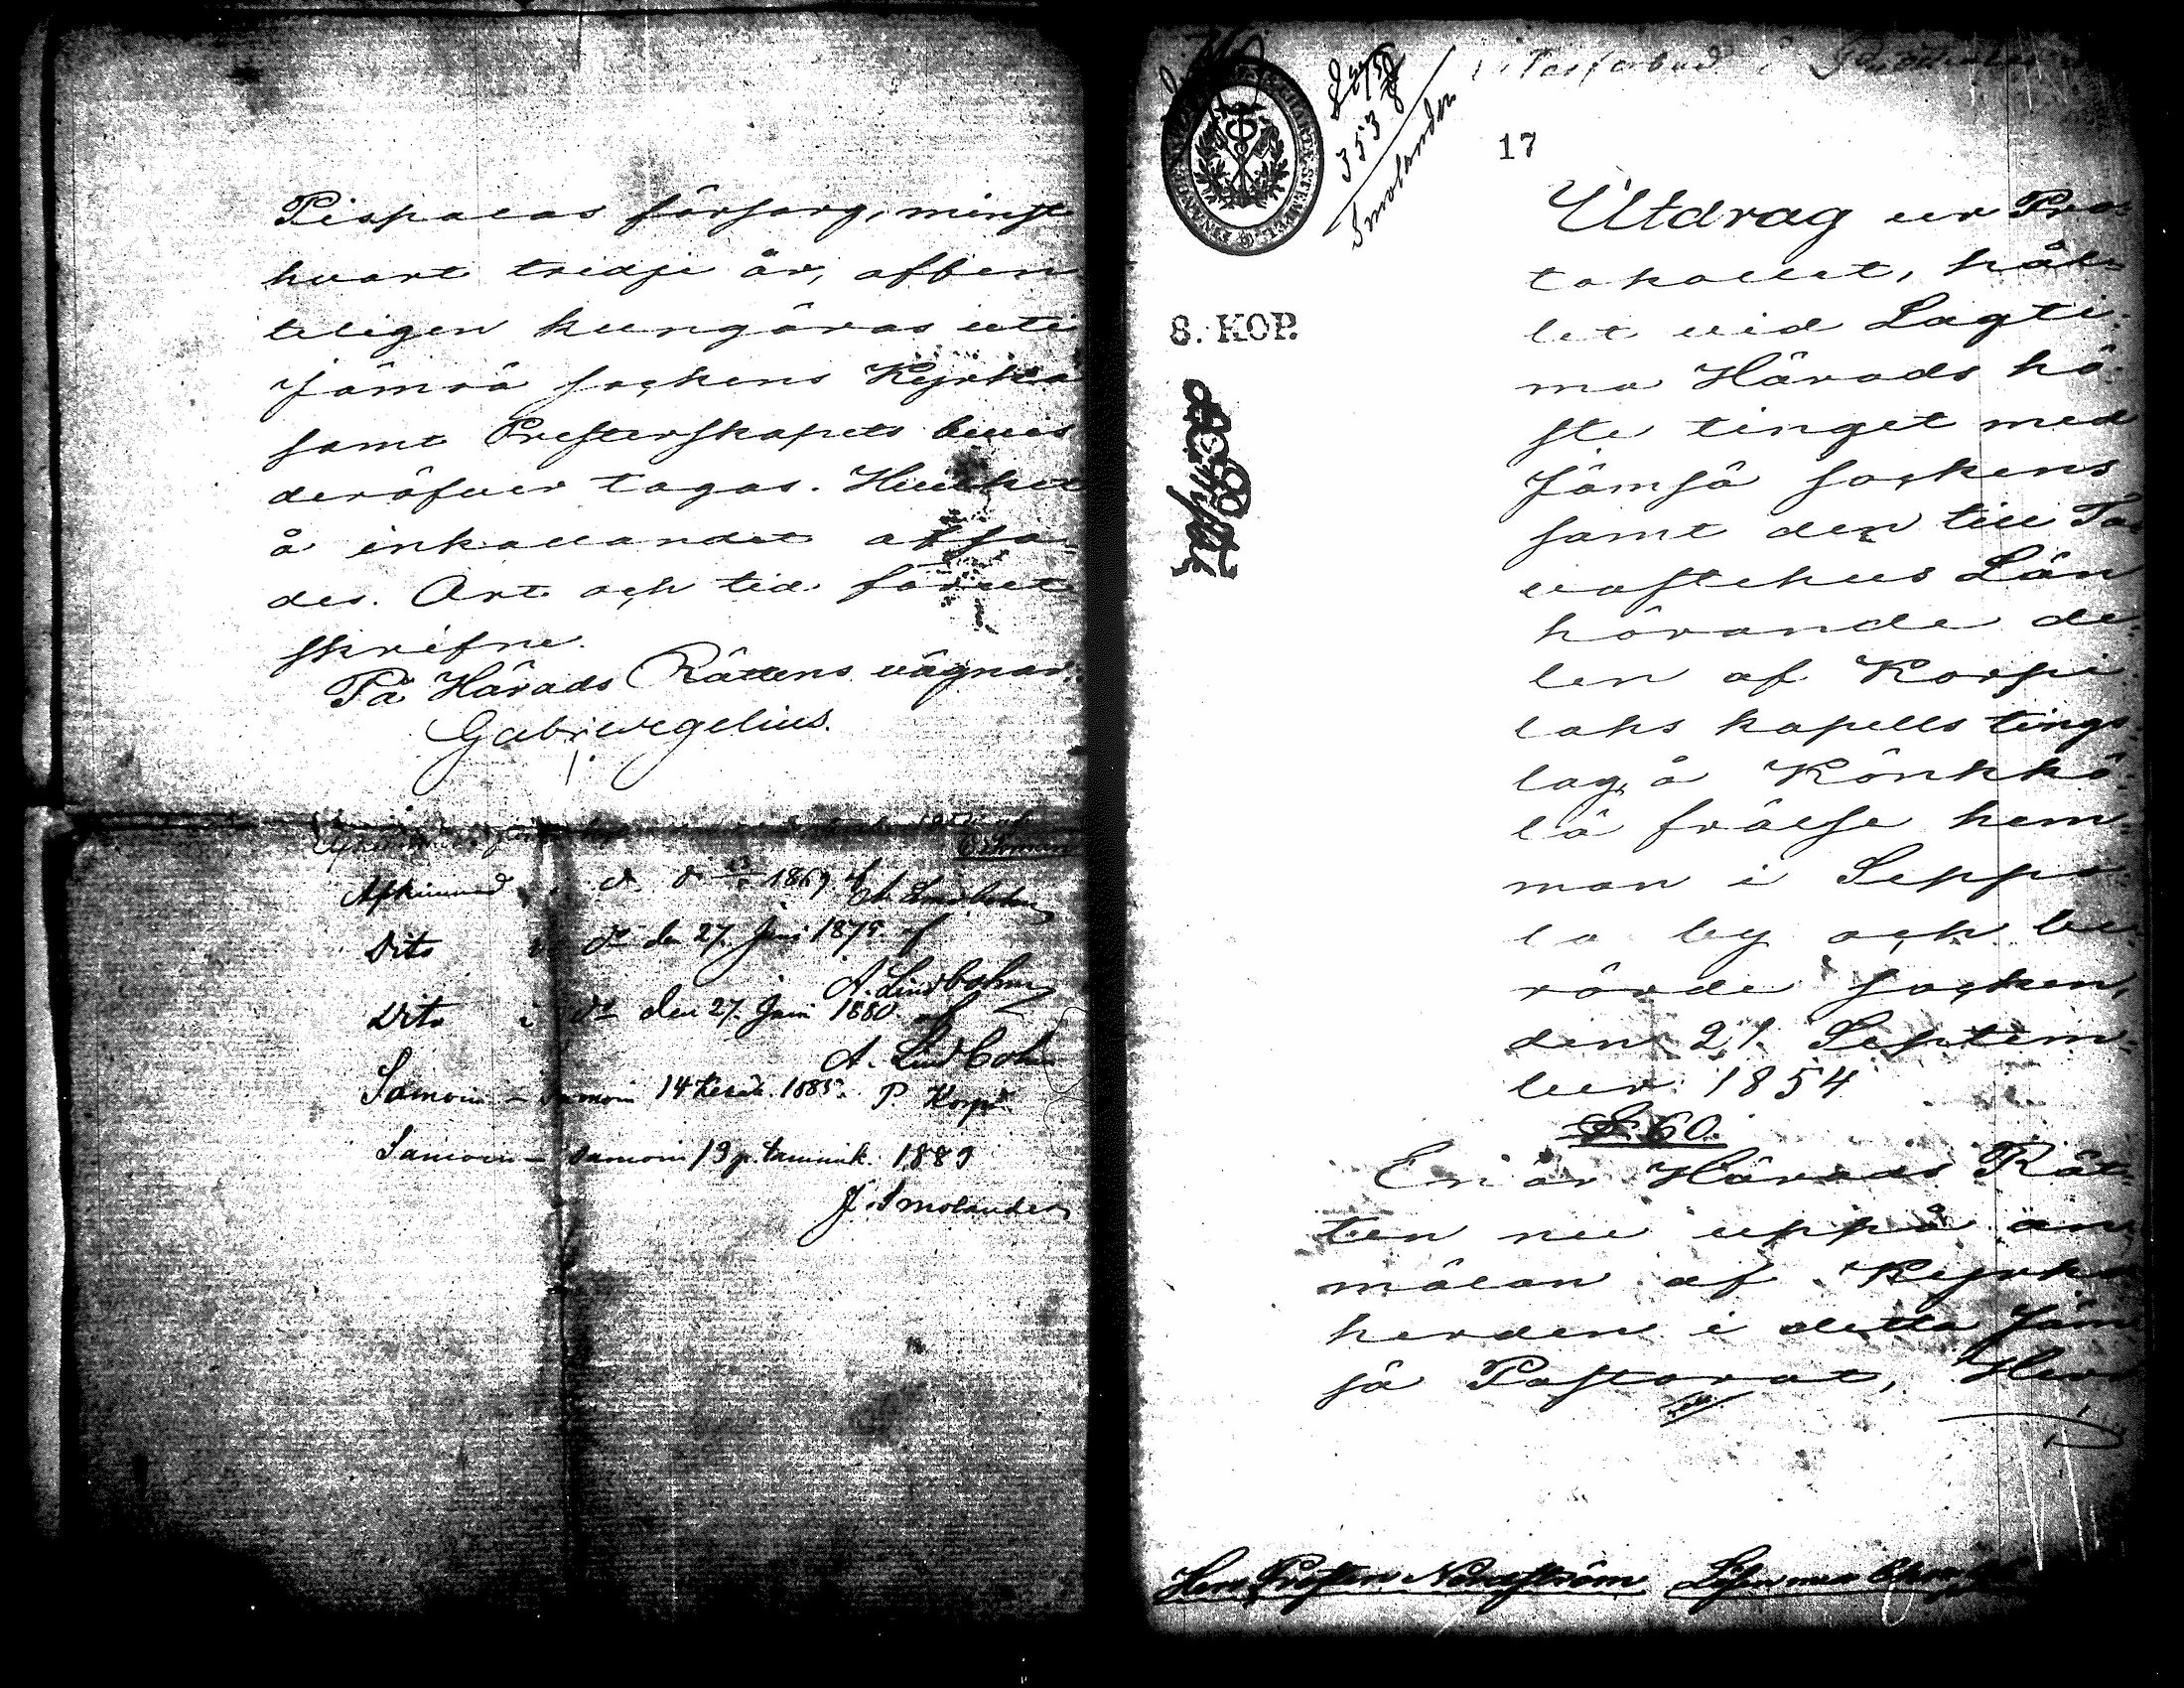 Pispalas försorg, minst
hvart tredje år, offen
teligen kungöras uti
Jämsä sockens Kyrka
samt Presterskapets bevis
deröfver tagas. Hvilket
å inkallandet afsa-
des. Ort och tid förut
skrifne.
På Härads Rättens vägnar:
Gabr: Wegelius.
1869
A. Lindbohm
Dito den 27. Juni 1875 af
A. Lindbohm
Dito i do den 27. Juni 1880 af
A. Lindbohm
Samoin - samoin 14 Kesäk. 1885. P. Korpi
Samoin - samoin 19 p. tammik. 1889
J. Smolander
353
Smolander
17
8. KOP.
Utdrag ur Pro-
tokollet, hål-
let vid Lagti-
ma Härads hö-
ste tinget med
Jämsä sockens
samt den till Ta
vastehus Län
hörande de-
len af Korpi
laks kapells tings
lag, å Könkkö-
lä frälse hem-
man i Seppo
la by och be-
rörde socken,
den 21. Septem-
ber 1854
§. 60.
En är Härads Rät-
ten nu uppå an
mälan af Kyrko
herden i detta Jäm
sä Pastorat, Herr
Herr Prosten Nordström